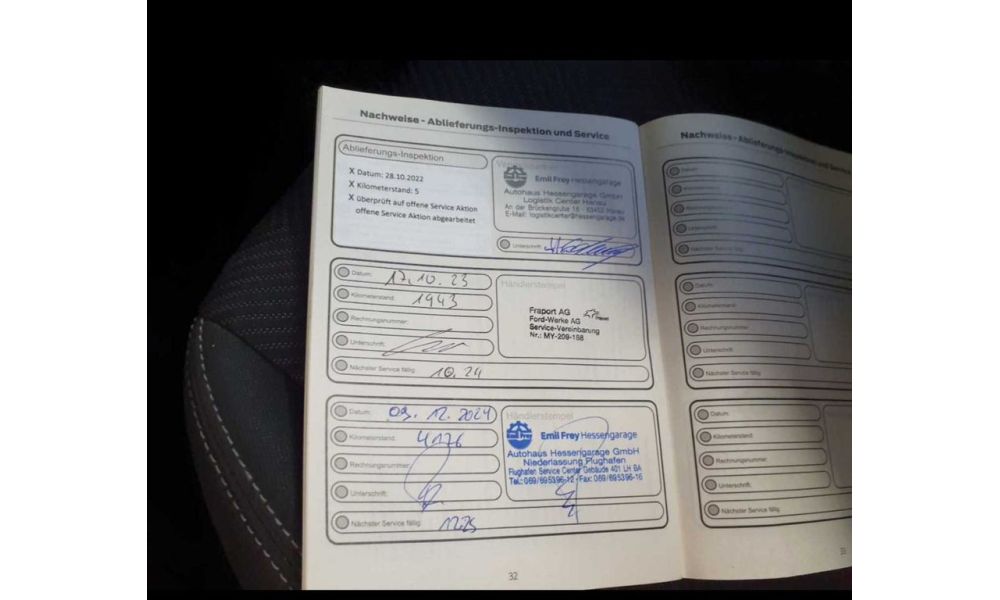 Nachweise - Ablieferungs-Inspektion und Service
Ablieferungs-Inspektion
X Datum: 28.10.2022
X Kilometerstand: 5
X überprüft auf offene Service Aktion
offene Service Aktion abgearbeitet
Emil Frey Hessengarage
Autohaus Hessengarage GmbH
Logistik Center Hanau
An der Brückengrube 15 - 63452 Hanau
E-Mail: logistikcenter@hessengarage.de
Unterschrift:
Datum: 17.10.23
Kilometerstand: 1943
Rechnungsnummer:
Unterschrift:
Nächster Service fällig: 10.24
Händlerstempel
Fraport AG
Ford-Werke AG
Service-Vereinbarung
Nr.: MY-209-188
Datum: 09.12.2024
Kilometerstand: 4176
Rechnungsnummer:
Unterschrift:
Nächster Service fällig: 12.25
Händlerstempel
Emil Frey
Emil Frey Hessengarage
Autohaus Hessengarage GmbH
Niederlassung Flughafen
Flughafen Service Center Gebäude 401 LH BA
Tel.: 069/695396-12 - Fax: 069/695396-16
32
Nachweise - Ablieferungs-Inspektion und Service
Datum:
Kilometerstand:
Rechnungsnummer:
Unterschrift:
Nächster Service fällig:
Datum:
Kilometerstand:
Rechnungsnummer:
Unterschrift:
Nächster Service fällig:
Datum:
Kilometerstand:
Rechnungsnummer:
Unterschrift:
Nächster Service fällig:
33